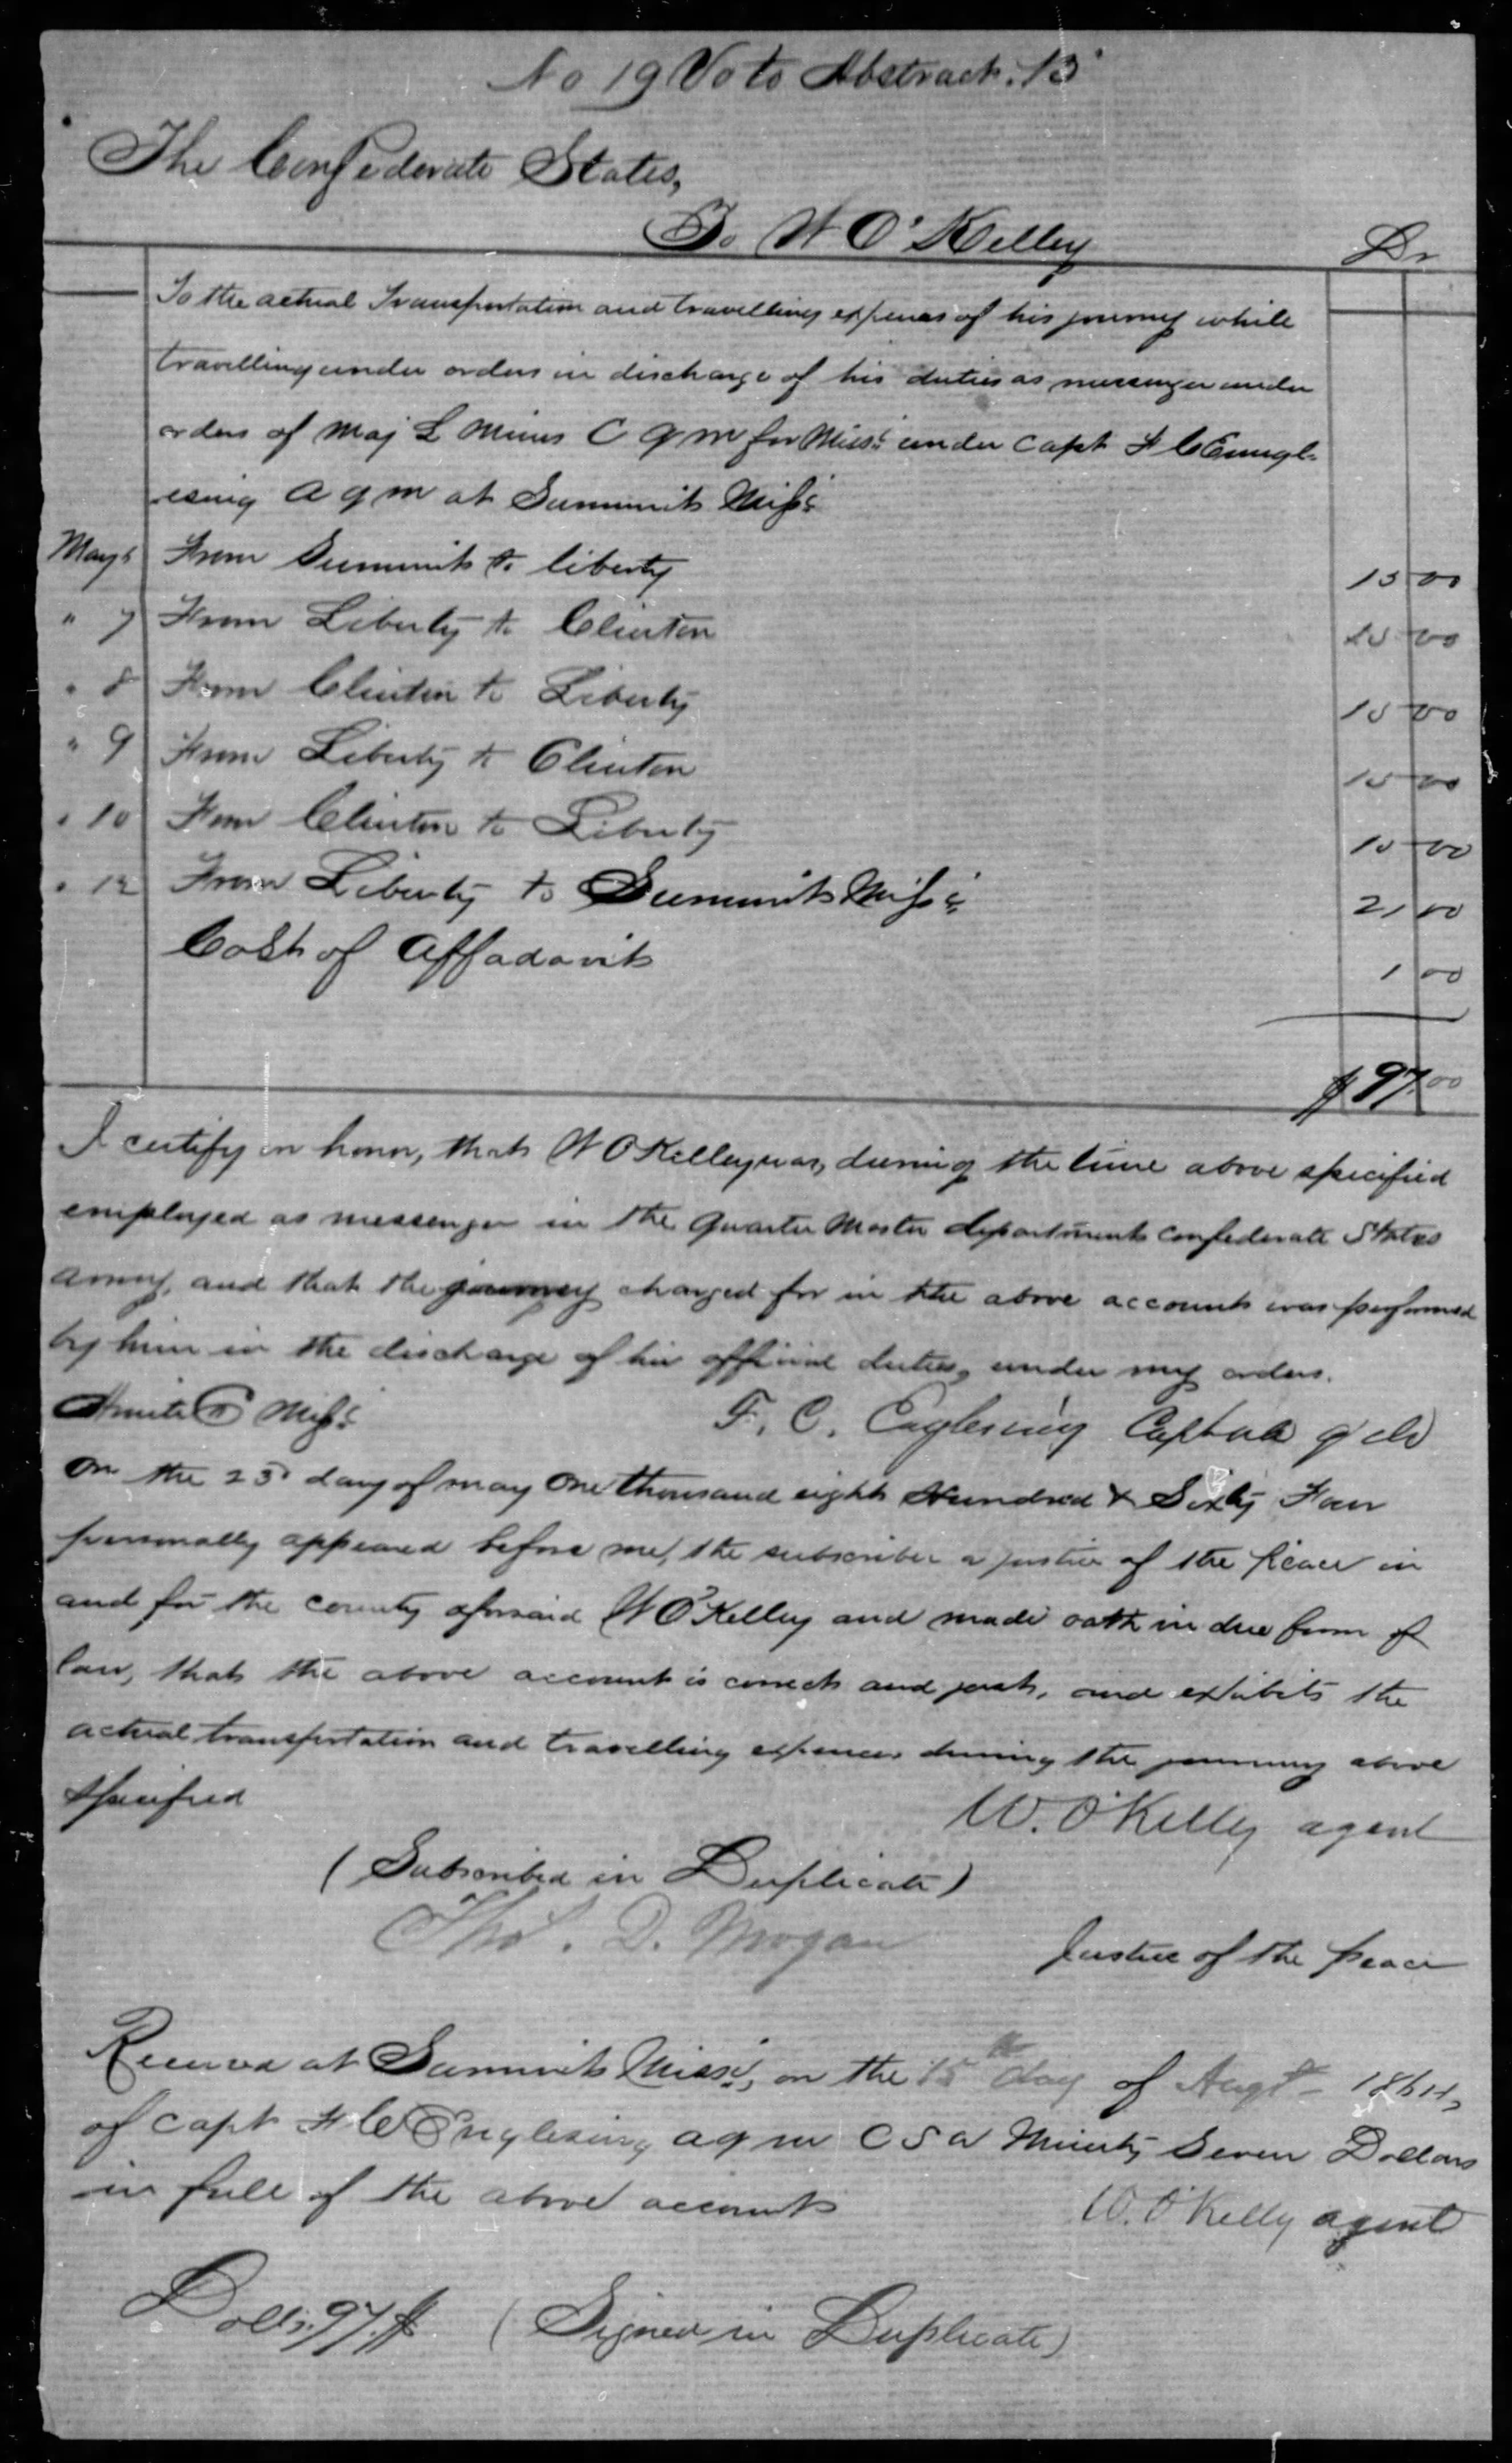 No 19 Vo to Abstract. B
The Confederate States,
To W O'Kelley Dr
To the actual Transportation and travelling expenses of his journey while
travelling under orders in discharge of his duties as messenger under
orders of Maj L Mims C q m for Miss: under Capt F C Engl-
esing A q m at Summit Miss:
May 6 From Summit to liberty 15 00
" 7 From Liberty to Clinton 15 00
" 8 From Clinton to Liberty 15 00
" 9 From Liberty to Clinton 15 00
" 10 From Clinton to Liberty 15 00
" 12 From Liberty to Summit Miss: 21 00
Cost of Affadavit 1 00
$ 97 00
I certify on honor, that W O Kelley was, during the time above specified
employed as messenger in the Quarter Master department Confederate States
Army, and that the journey charged for in the above account was performed
by him in the discharge of his official duties, under my orders.
Amite Co Miss: F. C. Englesing Capt & a q m
On the 25 day of may One thousand eight Hundred & Sixty Four
personally appeared before me, the subscriber a justice of the peace in
and for the county aforsaid W O'Kelley and made oath in due form of
law, that the above account is correct and just, and exhibits the
actual transportation and travelling expences during the journey above
specified
W. O'Kelly agent
(Subscribed in Duplicate)
Thos. D. Mogan Justice of the peace
Received at Summit Miss:, on the 15th day of Augt- 1864,
of Capt F C Englesing a q m C S a Ninety Seven Dollars
in full of the above account
W. O'Kelly agent
Dolls. 97.$ (Signed in Duplicate)